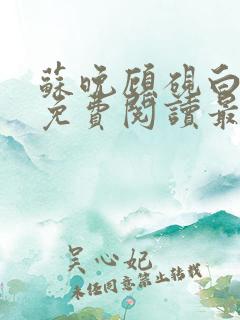 蘇晚顧硯白
免費閱讀最
吴心妃
未经同意禁止转载